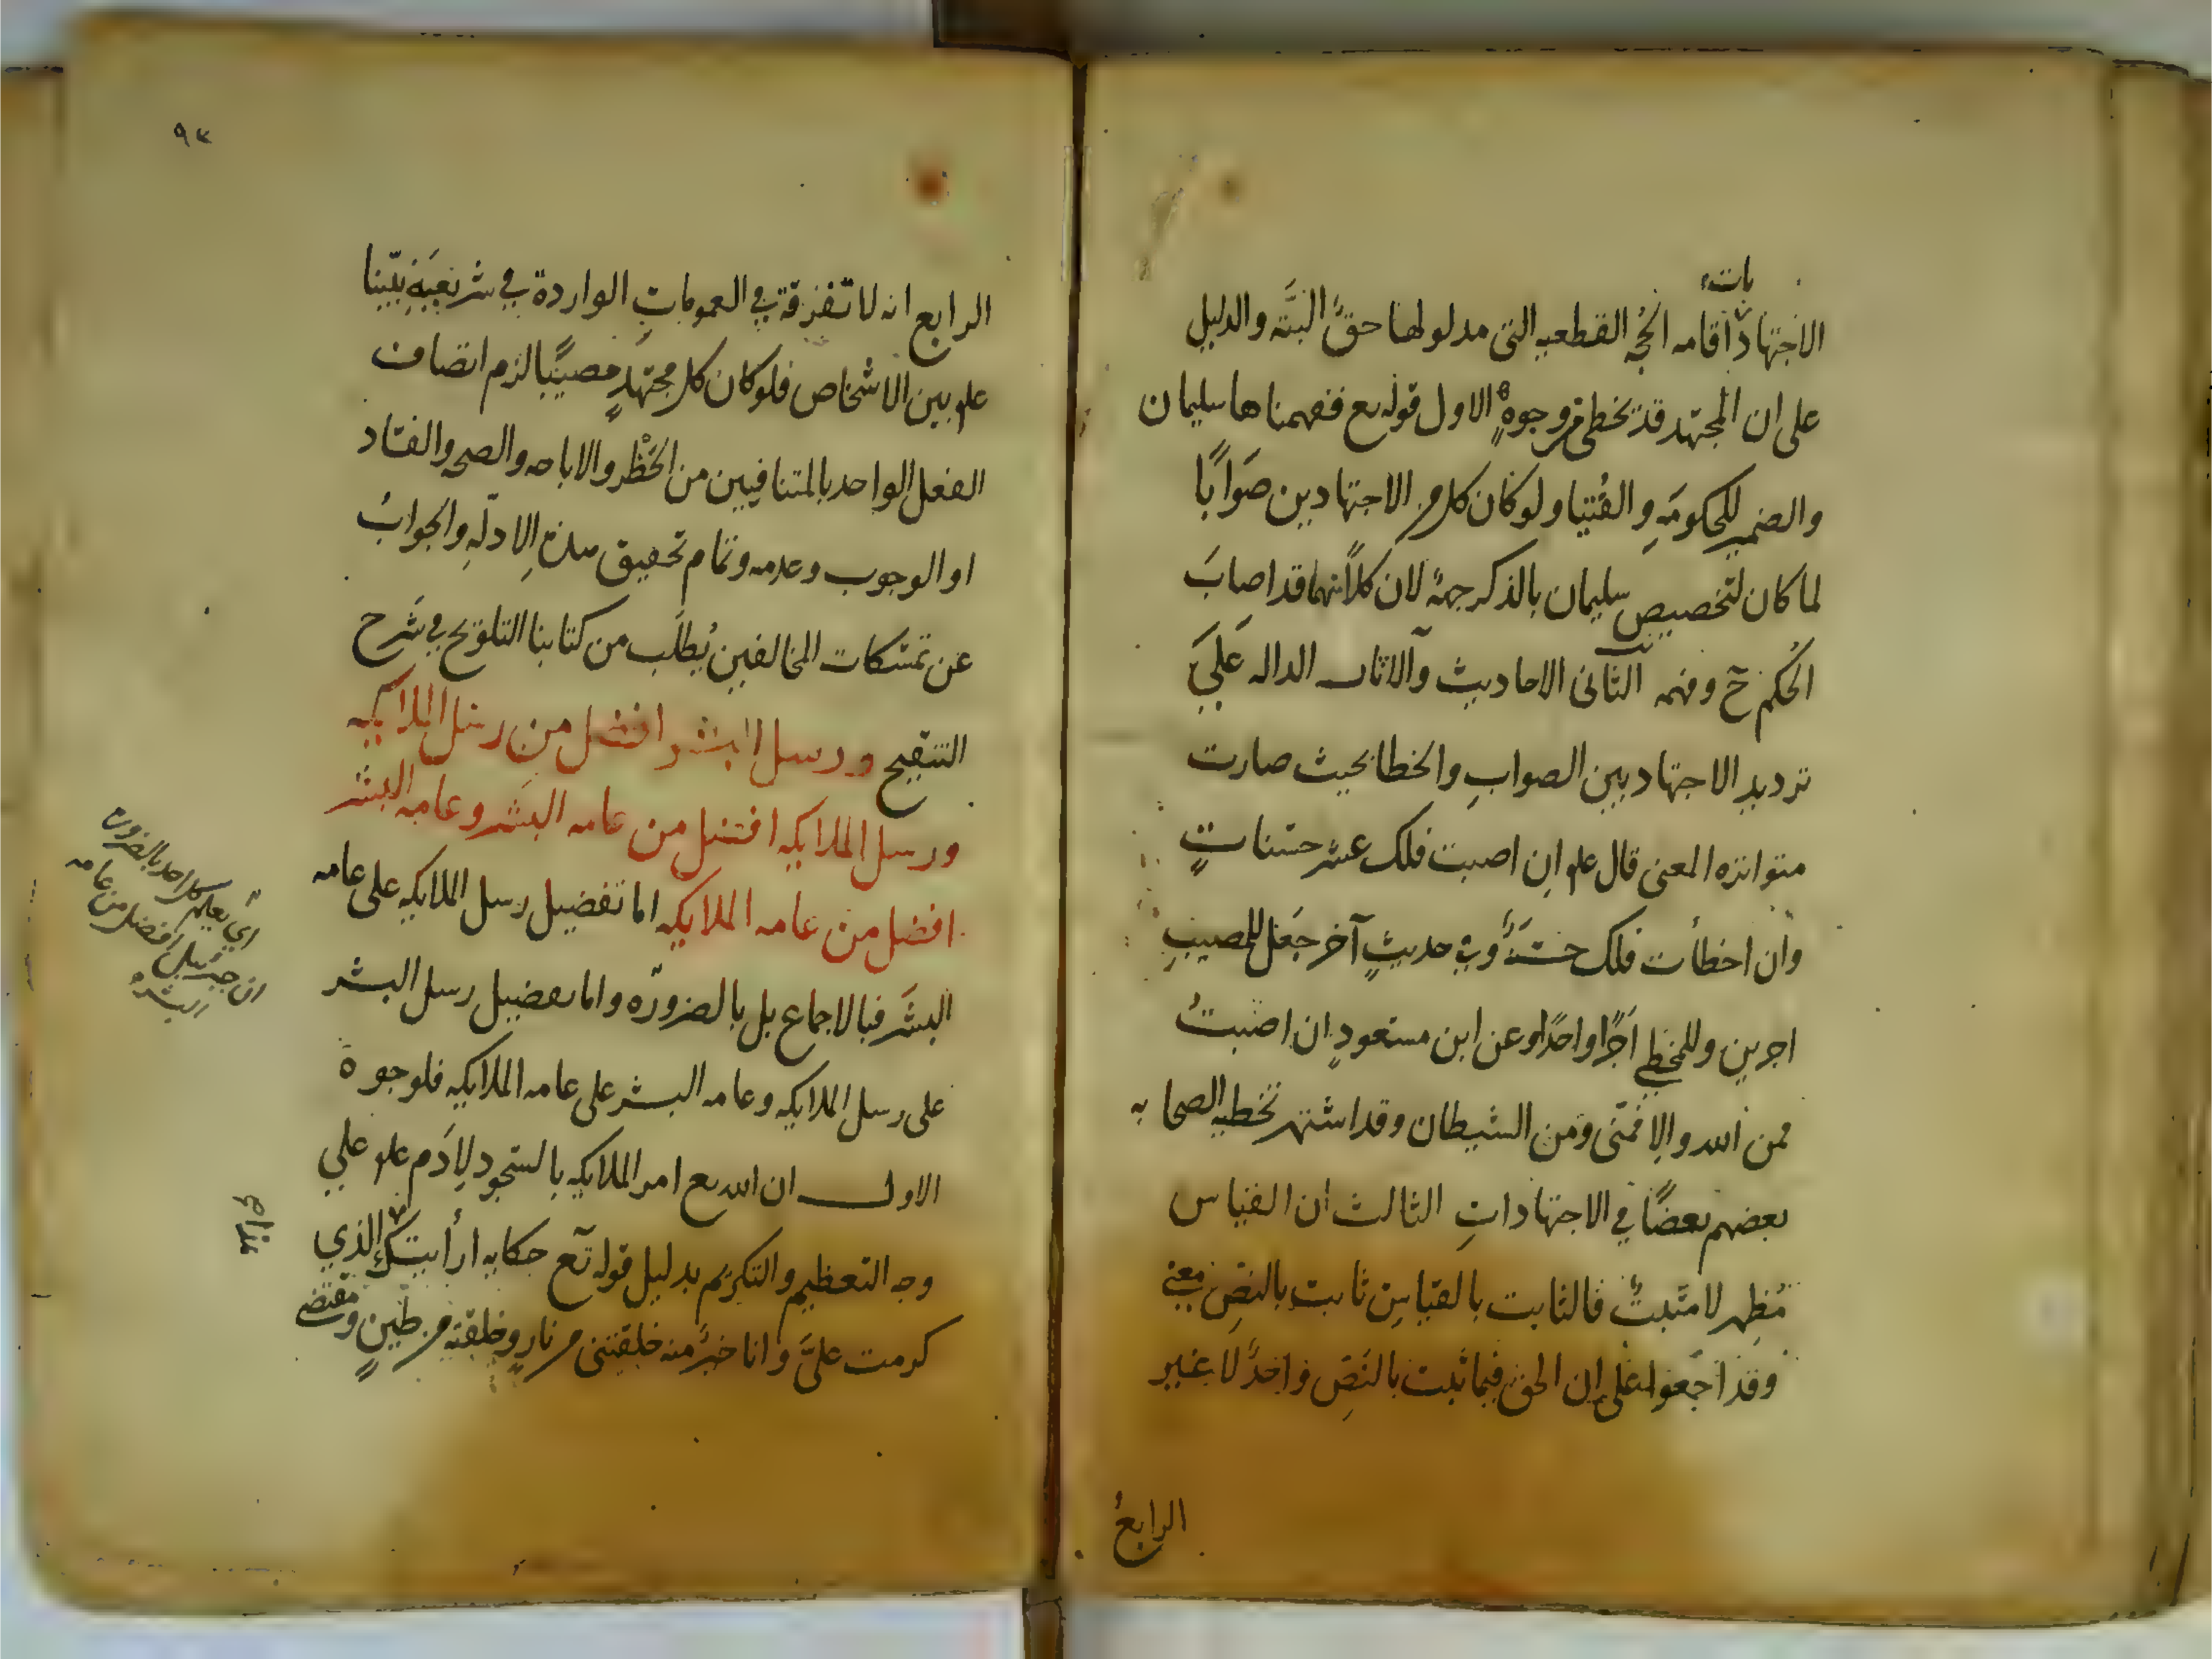 بات
الاجتهاد اقامه الحجه القطعيه التى مدلولها حقٌ البتَّه والدليل
على ان المجتهد قد يخطى من وجوهٍ الاول قوله تع ففهمناها سليمان
والضمير للحكومَهِ والفُتيا ولو كان كل من الاجتهادين صَوَابًا
لما كان لتخصيص سليمان بالذكر جهةٌ لان كلاًّ منهما قد اصابَ
الحُكم حٓ وفهمه الثانى الاحاديث والاثار الداله عَلىَ
ترديدِ الاجتهاد بين الصوابِ والخطا بحيث صارت
متواتره المعنى قال علم ان اصبت فلك عشر حسناتٍ
وان اخطأت فلك حسنَةٌ وفى حديثٍ آخر جَعَل للمصيبِ
اجرين وللمخطي اَجرًا واحدًا وعن ابن مسعودٍ ان اصَبتُ
فمن الله والا فمنّى ومن الشيطان وقد اشتهر تخطيه الصحابه
بعضهم بعضًا في الاجتهاداتِ الثالث ان القياس
مُظهِر لا مثبتٌ فالثابت بالقياسِ ثابت بالنصِّ معنى
وقد اجمَعوا على ان الحق فيما ثبت بالنَصِّ واحدٌ لا غير
الرابعُ
٩٣
الرابع انه لا تفرقة في العموماتِ الواردة في شريعَةِ نبيّنا
علم بين الاشخاص فلو كان كل مجتهدٍ مصيبًا لزم اتصاف
الفعل الواحد بالمتنافيين من الحَظْر والاباحه والصحه والفساد
او الوجوب وعدمه وتمام تحقيق هذه الادلّهِ والجوابُ
عن تمسّكات المخالفين يُطلَب من كتابنا التلويح في شَرح
التنقيح ورسل البشر افضل من رسل الملايكه
ورسل الملايكه افضل من عامه البشَر وعامه البشر
افضل من عامه الملايكه اما تفضيل رسل الملايكه على عامه
البشَر فبالاجماع بل بالضرورّه واما تفضيل رسل البشر
على رسل الملايكه وعامه البشر على عامه الملايكه فلوجوه
الاول ان الله تع امر الملايكه بالسّجود لآدَم علم علي
وجه التعظيم والتكريم بدليل قوله تٓع حكايه ارأيتك هذا الذي
كرمت علىَّ وانا خيرٌ منه خلقتنى من نارٍ وخلقته من طينٍ ومقتضى
اي يعلم كل احد بالضروره
ان جبريل افضل من عامه
البشر